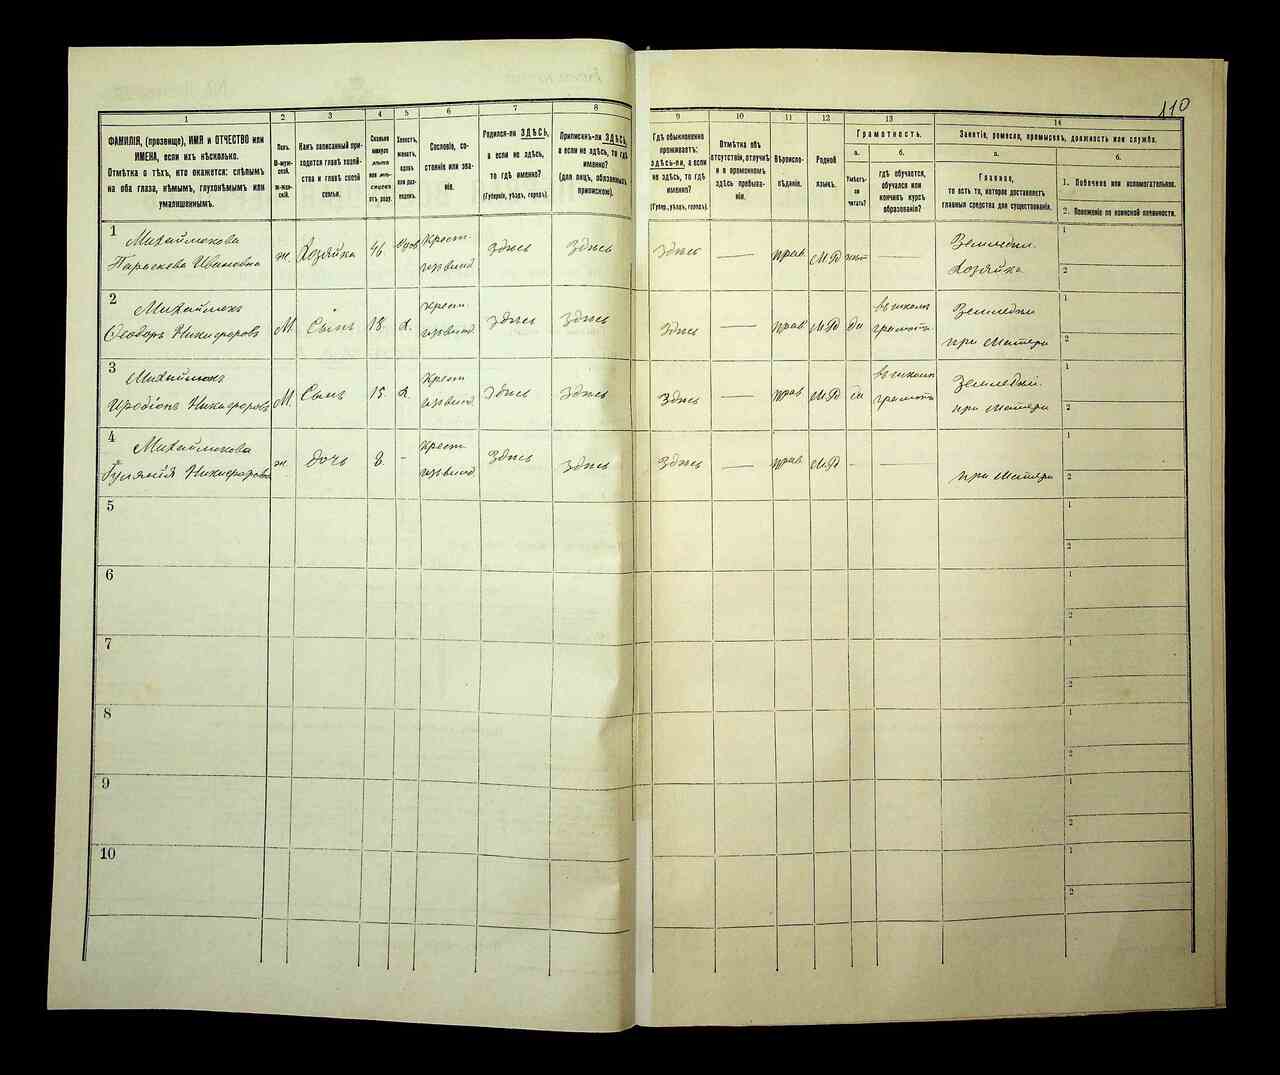 110
1
2
3
4
5
6
7
8
9
10
11
12
13
14
ФАМИЛІЯ, (прозвище), ИМЯ и ОТЧЕСТВО или
ИМЕНА, если ихъ нѣсколько.
Отмѣтка о тѣхъ, кто окажется: слѣпымъ
на оба глаза, нѣмымъ, глухонѣмымъ или
умалишеннымъ.
Полъ.
М-муж-
ской.
Ж-жен-
скій.
Какъ записанный при-
ходится главѣ хозяй-
ства и главѣ своей
семьи.
Сколько
минуло
лѣтъ
или мѣ-
сяцевъ
отъ роду.
Холостъ,
женатъ,
вдовъ
или раз-
веденъ.
Сословіе, со-
стояніе или зва-
ніе.
Родился-ли ЗДѢСЬ,
а если не здѣсь,
то гдѣ именно?
(Губернія, уѣздъ, городъ).
Приписанъ-ли ЗДѢСЬ,
а если не здѣсь, то гдѣ
именно?
(для лицъ, обязанныхъ
припискою).
Гдѣ обыкновенно
проживаетъ:
здѣсь-ли, а если
не здѣсь, то гдѣ
именно?
(Губер., уѣздъ, городъ).
Отмѣтка объ
отсутствіи, отлучкѣ
и о временномъ
здѣсь пребыва-
ніи.
Вѣроиспо-
вѣданіе.
Родной
языкъ.
Грамотность.
а.
Умѣетъ-
ли
читать?
б.
гдѣ обучается,
обучался или
кончилъ курсъ
образованія?
Занятіе, ремесло, промыселъ, должность или служба.
а.
Главное,
то есть то, которое доставляетъ
главныя средства для существованія.
б.
1. Побочное или вспомогательное.
2. Положеніе по воинской повинности.
1
Михаймокова
Параскева Ивановна
ж.
Хозяйка
46
вдов
Крест.
здѣсь
здѣсь
здѣсь
—
прав.
МР
нѣт
—
Земледѣл.
Хозяйка
1
2
2
Ѳеодоръ Никифоровъ
М.
Сынъ
18.
х.
Крест.
здѣсь
здѣсь
здѣсь
—
прав
МР
да
въ школѣ
грамотѣ
Земледѣл
при Матери
1
2
3
Иродіонъ Никифоровъ
М.
Сынъ
15.
х.
Крест
здѣсь
здѣсь
здѣсь
—
прав
МР
да
въ школѣ
грамотѣ
Земледѣл.
при Матери
1
2
4
Михаймокова
Никифорова
ж.
дочь
8.
-
Крест.
здѣсь
здѣсь
здѣсь
—
прав
МР
-
—
при Матери
1
2
5
1
2
6
1
2
7
1
2
8
1
2
9
1
2
10
1
2